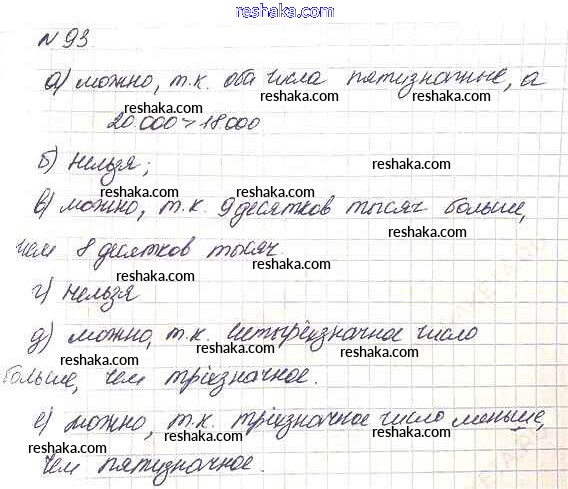 www.reshaka.com
№ 93.
а) можно, т.к. оба числа пятизначные, а
reshaka.com reshaka.com reshaka.com
20.000 > 18.000
reshaka.com
б) нельзя; reshaka.com
reshaka.com
в) можно, т.к. 9 десятков тысяч больше,
reshaka.com reshaka.com reshaka.com
чем 8 десятков тысяч.
reshaka.com
г) нельзя
reshaka.com
д) можно, т.к. четырёхзначное число
reshaka.com reshaka.com reshaka.com
больше, чем трёхзначное.
reshaka.com
е) можно, т.к. трёхзначное число меньше,
reshaka.com reshaka.com reshaka.com
чем пятизначное.
reshaka.com